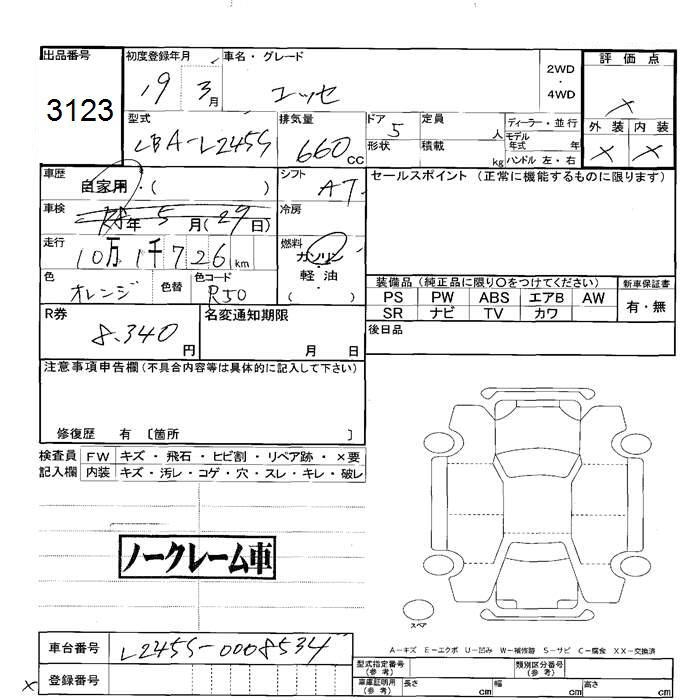 出品番号 初度登録年月 車名・グレード 評価点
3123 19 3月 エッセ 2WD ・ 4WD ×
型式 排気量 ドア 定員 ディーラー・並行 外装 内装
LBA-L245S 660cc 5 人 モデル年式 年 × ×
形状 積載 kg ハンドル 左・右
車歴 自家用・( ) シフト AT セールスポイント (正常に機能するものに限ります)
車検 年 5月(29日) 冷房
走行 10万1千726km 燃料 ガソリン・軽油・( )
色 オレンジ 色替 色コード R50
装備品 (純正品に限り○をつけてください) 新車保証書
PS PW ABS エアB AW 有・無
SR ナビ TV カワ
R券 8.340円 名変通知期限 月 日 後日品
注意事項申告欄 (不具合内容等は具体的に記入して下さい)
修復歴 有 〔箇所 〕
検査員 FW キズ・飛石・ヒビ割・リペア跡・×要
記入欄 内装 キズ・汚レ・コゲ・穴・スレ・キレ・破レ
ノークレーム車
スペア
A-キズ E-エクボ U-凹み W-補修跡 S-サビ C-腐食 XX-交換済
車台番号 L245S-0008534
型式指定番号(参考) 類別区分番号(参考)
× 登録番号
車庫証明用(参考) 長さ cm 幅 cm 高さ cm